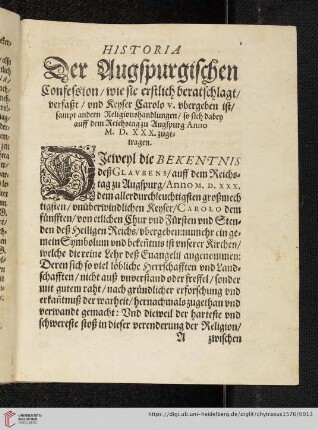 HISTORIA
Der Augspurgischen
Confession/ wie sie erstlich beratschlagt/
verfaßt/ vnd Keyser Carolo v. vbergeben ist/
sampt andern Religionshandlungen/ so sich dabey
auff dem Reichstag zu Augspurg Anno
M. D. XXX. zuge-
tragen.
DJeweyl die BEKENTNIS
deß GLAVBENS/ auff dem Reichs-
tag zu Augspurg/ ANNO M. D. XXX.
dem allerdurchleuchtigsten großmech
tigsten/ vnüberwindlichen Keyser/ CAROLO dem
fünfften/ von etlichen Chur vnd Fürsten vnd Sten-
den deß Heiligen Reichs/ vbergeben: nunmehr ein ge-
mein Symbolum vnd bekentnis ist vnserer Kirchen/
welche die reine Lehr deß Euangelii angenommen:
Deren sich so viel löbliche Herrschafften vnd Land-
schafften/ nicht auß vnverstand oder freffel/ sonder
mit gutem raht/ nach gründlicher erforschung vnd
erkantnuß der warheit/ hernachmals zugethan vnd
verwandt gemacht: Vnd dieweil der harteste vnd
schwereste stoß in dieser verenderung der Religion/
A zwischen
https://digi.ub.uni-heidelberg.de/diglit/chytraeus1576/0013